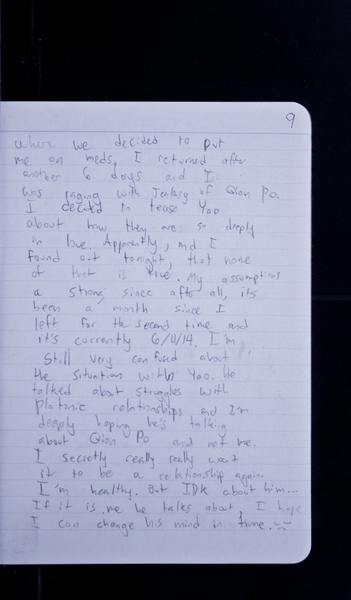 9
where we decided to put
me on meds, I returned after
another 6 days and I
was raging with Jealasy of Qion Po.
I decided to tease Yao
about how they are so deeply
in love. Apparently, and I
found out tonight, that none
of that is true. My assumptions
a strong, sinec after all, its
been a month since I
left for the second time and
it's currently 6/11/14. I'm
still very confused about
the situation with Yao. He
talked about struggles with
Platonic relationships and I'm
deeply hoping he's talking
about Qion Po and not me.
I secretly really really want
it to be a relationship again.
I'm healthy. But IDK about him...
If it is me he talks about, I hope
I can change his mind in time.